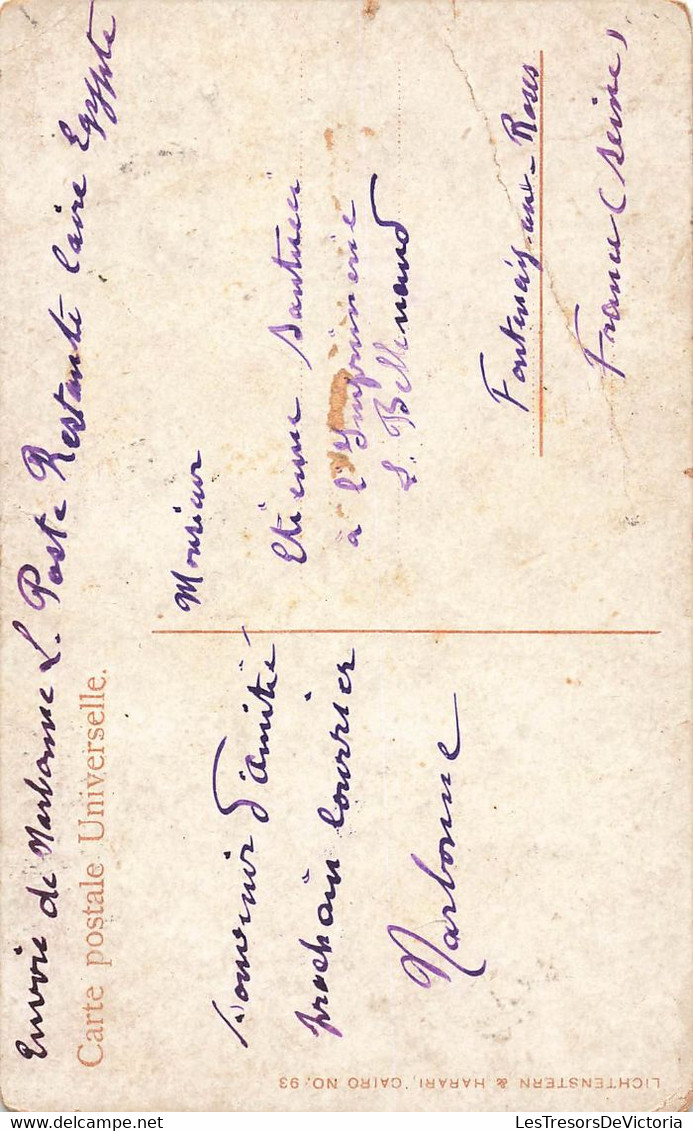 Envoie de Narbonne L. Poste Restante Caire Egypte
Carte postale Universelle.
Souvenir d'amitié
prochain courrier
Narbonne
Monsieur
Etienne Santucci
à l'Imprimerie
L. Bellenand
Fontenay-aux-Roses
France (Seine)
LICHTENSTERN & HARARI, CAIRO NO. 93
LesTresorsDeVictoria